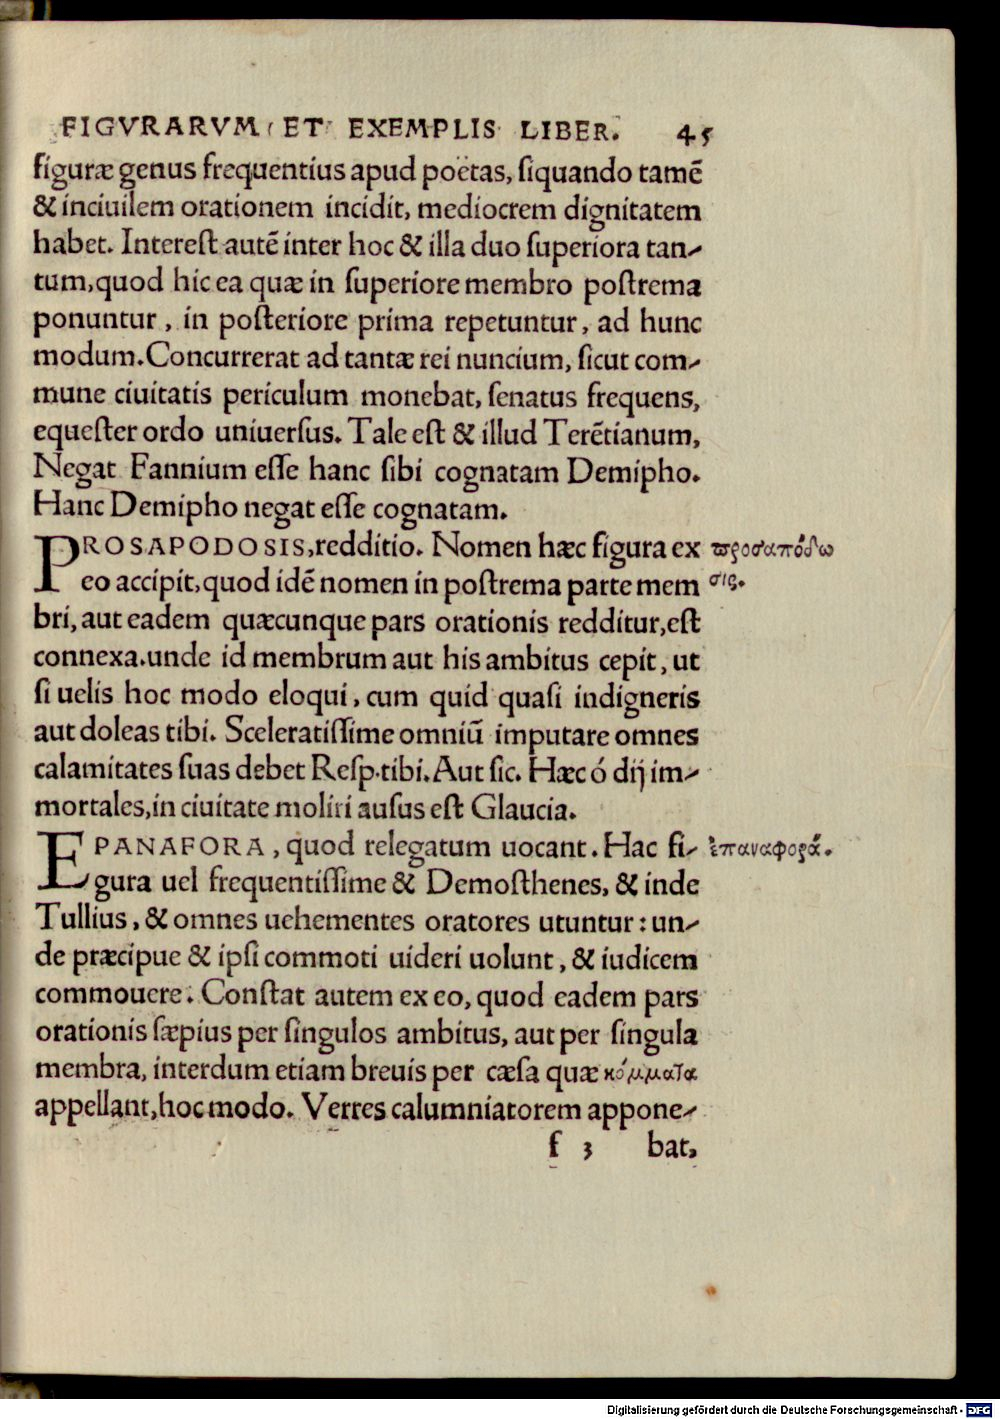 FIGVRARVM ET EXEMPLIS LIBER. 45
figuræ genus frequentius apud poëtas, ſiquando tamē
& inciuilem orationem incidit, mediocrem dignitatem
habet. Intereſt autē inter hoc & illa duo ſuperiora tan-
tum, quod hic ea quæ in ſuperiore membro poſtrema
ponuntur, in poſteriore prima repetuntur, ad hunc
modum. Concurrerat ad tantæ rei nuncium, ſicut com-
mune ciuitatis periculum monebat, ſenatus frequens,
equeſter ordo uniuerſus. Tale eſt & illud Terētianum,
Negat Fannium eſſe hanc ſibi cognatam Demipho.
Hanc Demipho negat eſſe cognatam.
PROSAPODOSIS, redditio. Nomen hæc figura ex προσαπόδω
eo accipit, quod idē nomen in poſtrema parte mem σις.
bri, aut eadem quæcunque pars orationis redditur, eſt
connexa. unde id membrum aut his ambitus cepit, ut
ſi uelis hoc modo eloqui, cum quid quaſi indigneris
aut doleas tibi. Sceleratiſſime omniū imputare omnes
calamitates ſuas debet Reſp. tibi. Aut ſic. Hæc ó dij im-
mortales, in ciuitate moliri auſus eſt Glaucia.
EPANAFORA, quod relegatum uocant. Hac fi- ἐπαναφορά.
gura uel frequentiſſime & Demoſthenes, & inde
Tullius, & omnes uehementes oratores utuntur: un-
de præcipue & ipſi commoti uideri uolunt, & iudicem
commouere. Conſtat autem ex eo, quod eadem pars
orationis ſæpius per ſingulos ambitus, aut per ſingula
membra, interdum etiam breuis per cæſa quæ κόμματα
appellant, hoc modo. Verres calumniatorem appone-
f 3 bat,
Digitalisierung gefördert durch die Deutsche Forschungsgemeinschaft - DFG